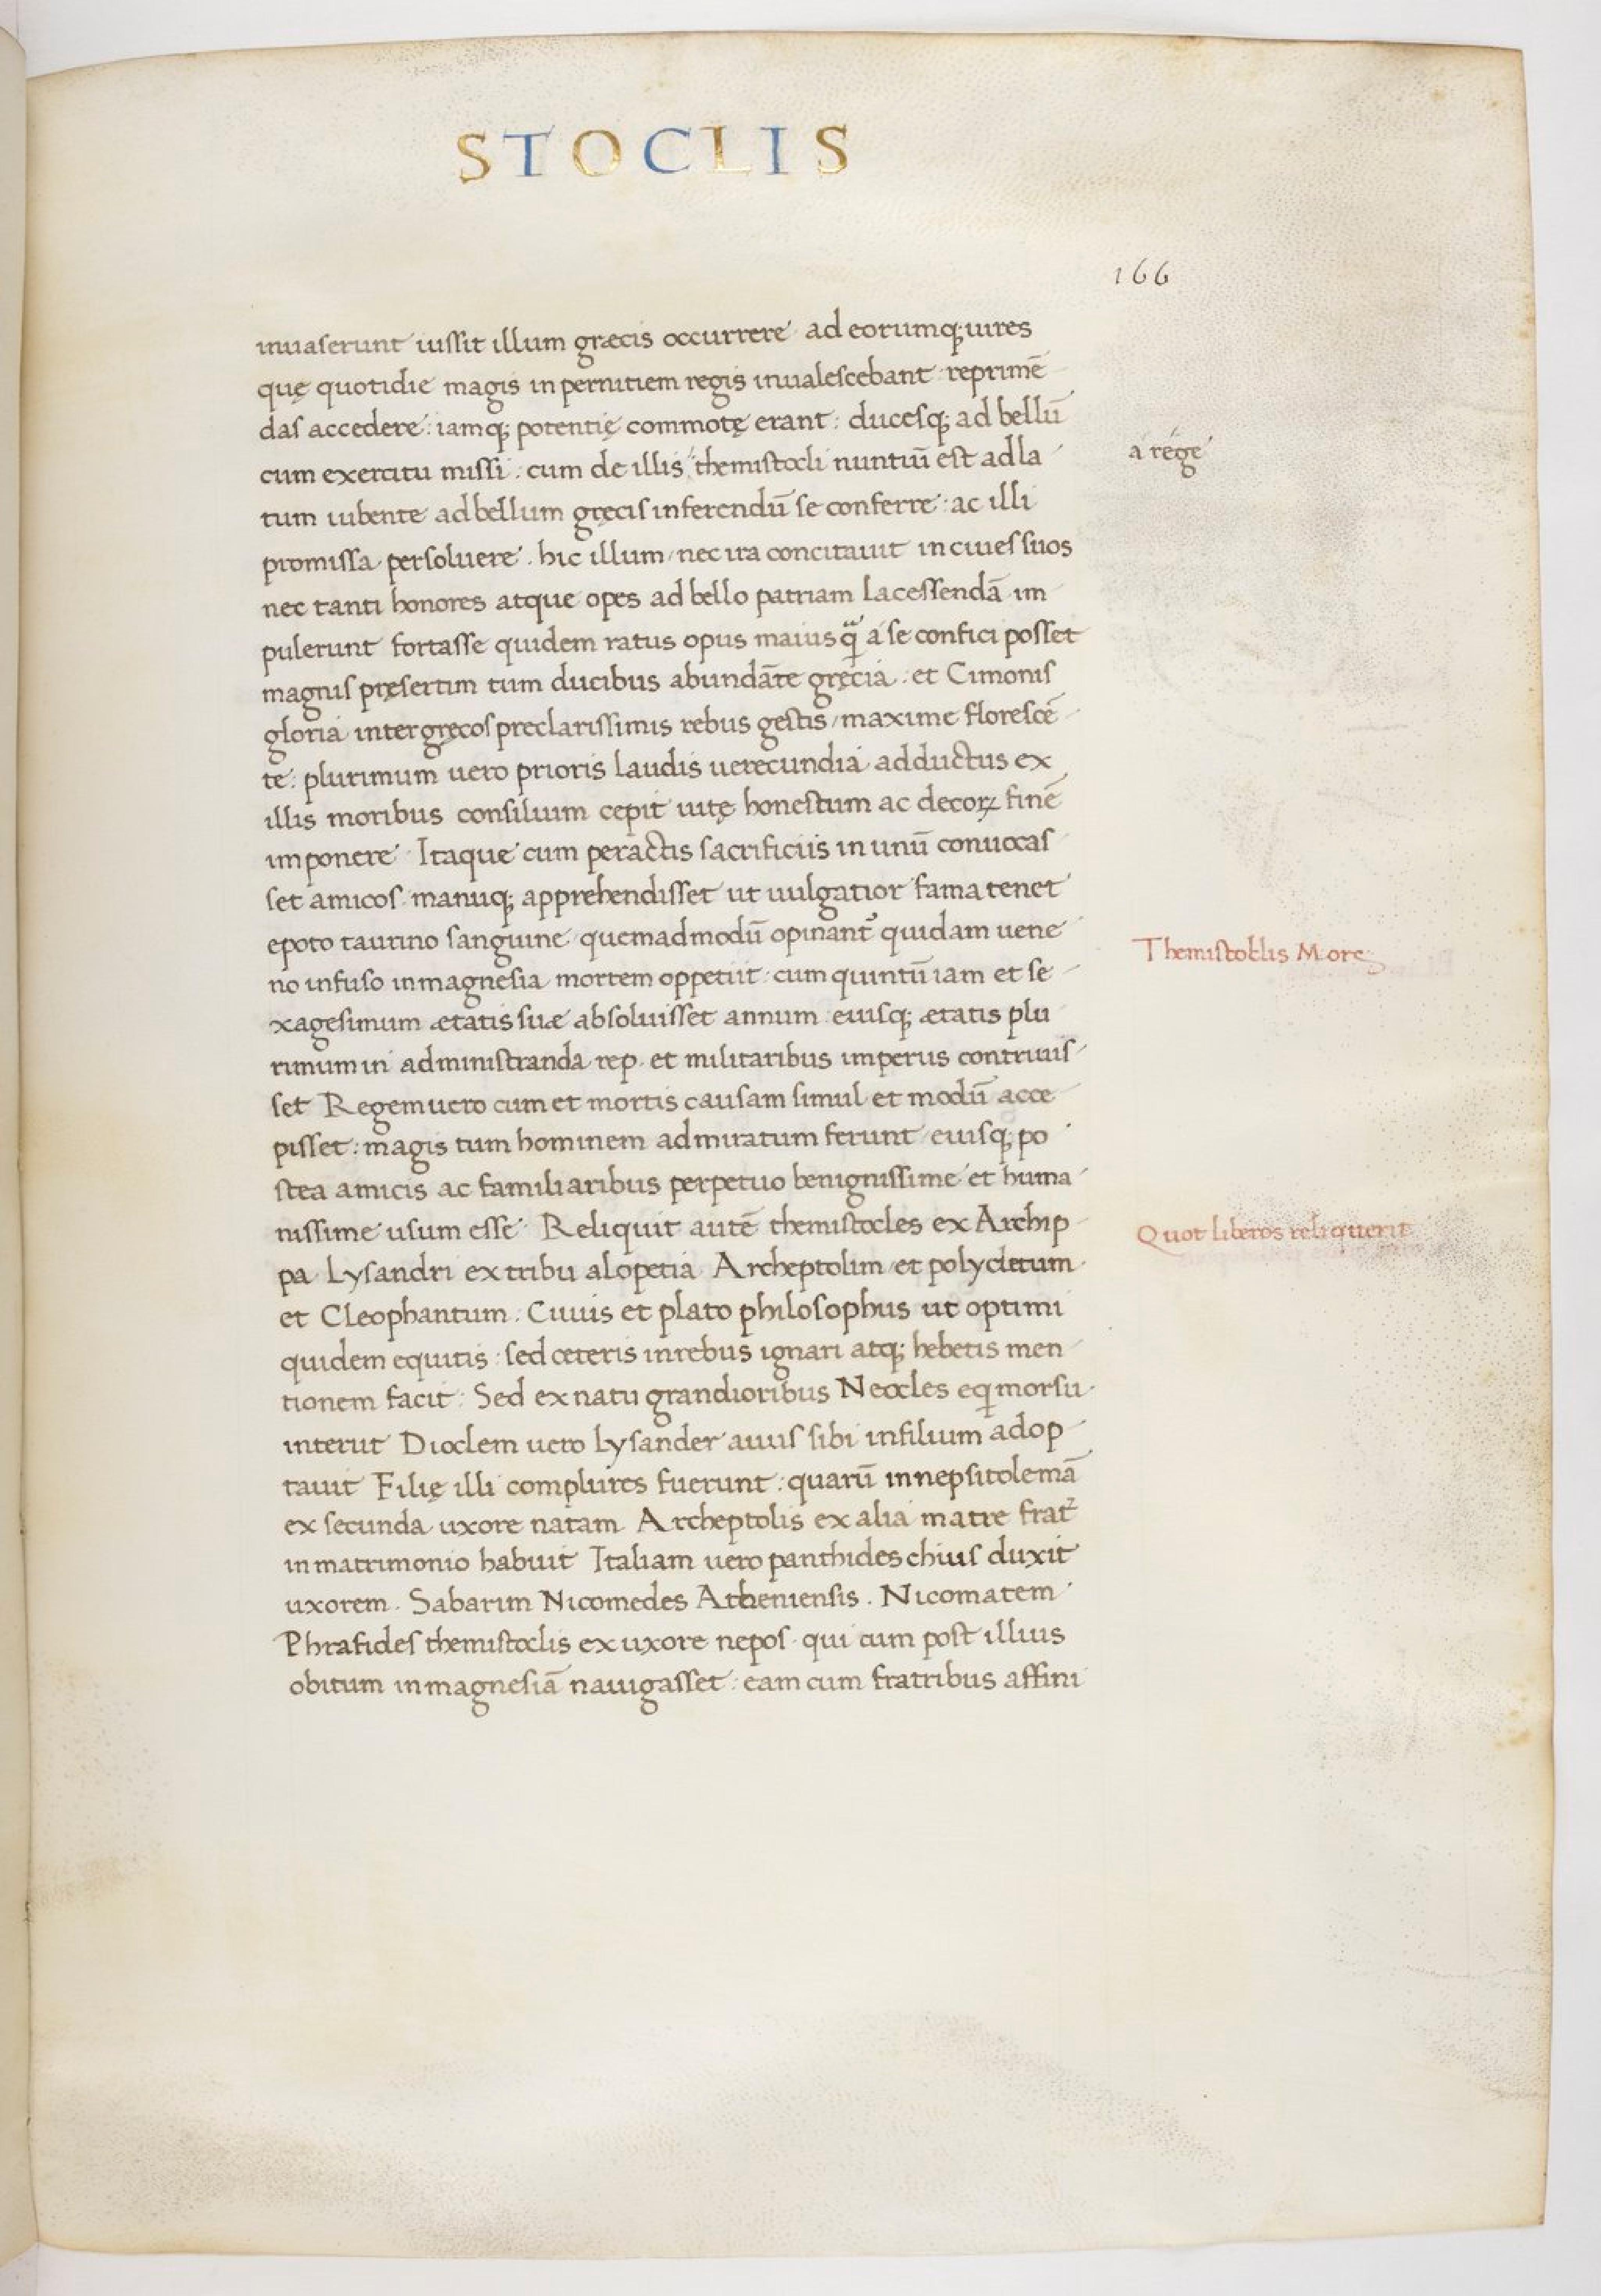 STOCLIS
166
inuaserunt iussit illum græcis occurrere ad eorumq; uires
quę quotidie magis in pernitiem regis inualescebant · reprimē
das accedere : iamq; potentię commotę erant : ducesq; ad bellū
cum exercitu missi : cum de illis themistocli nuntiū est adla
a rege
tum iubente ad bellum gręcis inferendū se conferre : ac illi
promissa persoluere . hic illum / nec ira concitauit in ciues suos
nec tanti honores atque opes ad bello patriam lacessendā im
pulerunt fortasse quidem ratus opus maius q̃ a se confici posset
magnis pręsertim tum ducibus abundāte gręcia : et Cimonis
gloria inter gręcos preclarissimis rebus gestis / maxime florescē
te : plurimum uero prioris laudis uerecundia adductus ex
illis moribus consilium cepit uitę honestum ac decoꝝ finē
imponere Itaque cum peractis sacrificiis in unū conuocas
set amicos manuq; apprehendisset ut uulgatior fama tenet
epoto taurino sanguine / quemadmodū opinant᷑ quidam uene
Themistoclis Mors
no infuso in magnesia mortem oppetiit · cum quintū iam et se
xagesimum ætatis suæ absoluisset annum eiusq; ætatis plu
rimum in administranda rep. et militaribus imperiis contriuis
set Regem uero cum et mortis causam simul et modū acce
pisset : magis tum hominem admiratum ferunt / eiusq; po
stea amicis ac familiaribus perpetuo benignissime et huma
nissime usum esse Reliquit autē themistocles ex Archip
Quot liberos reliquerit
pa Lysandri ex tribu alopetia Archeptolim / et polycletum
et Cleophantum : Cuius et plato philosophus ut optimi
quidem equitis : sed ceteris in rebus ignari atq; hebetis men
tionem facit : Sed ex natu grandioribus Neocles eqͥ morsu
interiit Dioclem uero Lysander auus sibi in filium adop
tauit Filię illi complures fuerunt : quarū innepsitolemā
ex secunda uxore natam Archeptolis ex alia matre frat᷑
in matrimonio habuit Italiam uero panthides chius duxit
uxorem . Sabarim Nicomedes Atheniensis . Nicomatem
Phrasides themistoclis ex uxore nepos · qui cum post illius
obitum in magnesiā nauigasset : eam cum fratribus affini